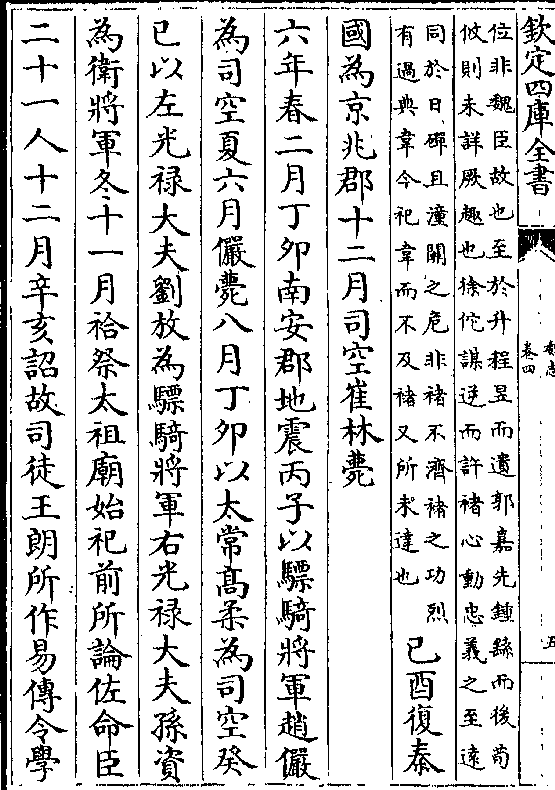 欽定四庫全書
卷四
五
位非魏臣故也至於升程昱而遺郭嘉先鍾繇而後荀
攸則未詳厥趣也徐佗謀逆而許褚心動忠義之至遠
同於日磾且潼關之危非褚不濟褚之功烈
有過典韋今祀韋而不及褚又所未達也
己酉復秦
國為京兆郡十二月司空崔林薨
六年春二月丁卯南安郡地震丙子以驃騎將軍趙儼
為司空夏六月儼薨八月丁卯以太常髙柔為司空癸
巳以左光禄大夫劉放為驃騎將軍右光禄大夫孫資
為衛將軍冬十一月祫祭太祖廟始祀前所論佐命臣
二十一人十二月辛亥詔故司徒王朗所作易傳令學